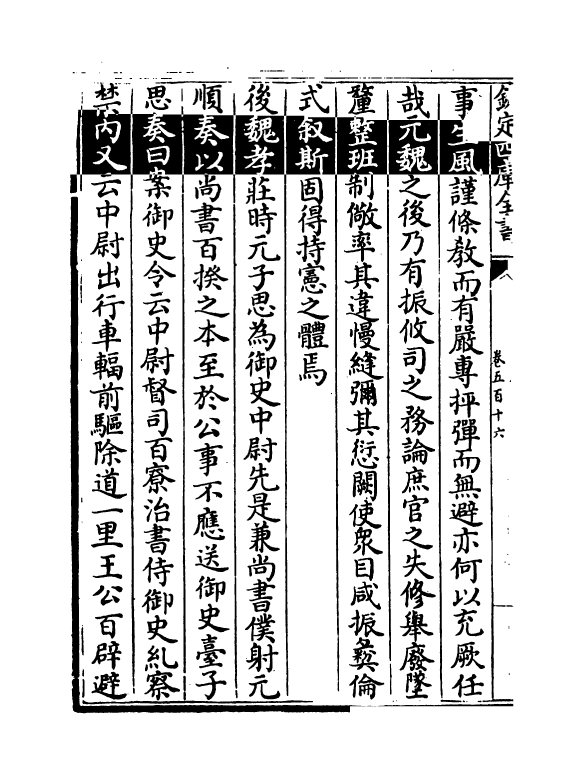 欽定四庫全書
卷五百十六
事生風謹條教而有嚴專抨彈而無避亦何以充厥任
哉元魏之後乃有振攸司之務論庶官之失修舉廢墜
釐整班制儆率其違慢縫彌其愆闕使衆目咸振彜倫
式叙斯固得持憲之體焉
後魏孝莊時元子思為御史中尉先是兼尚書僕射元
順奏以尚書百揆之本至於公事不應送御史臺子
思奏曰案御史令云中尉督司百寮治書侍御史糺察
禁内又云中尉出行車輻前驅除道一里王公百辟避